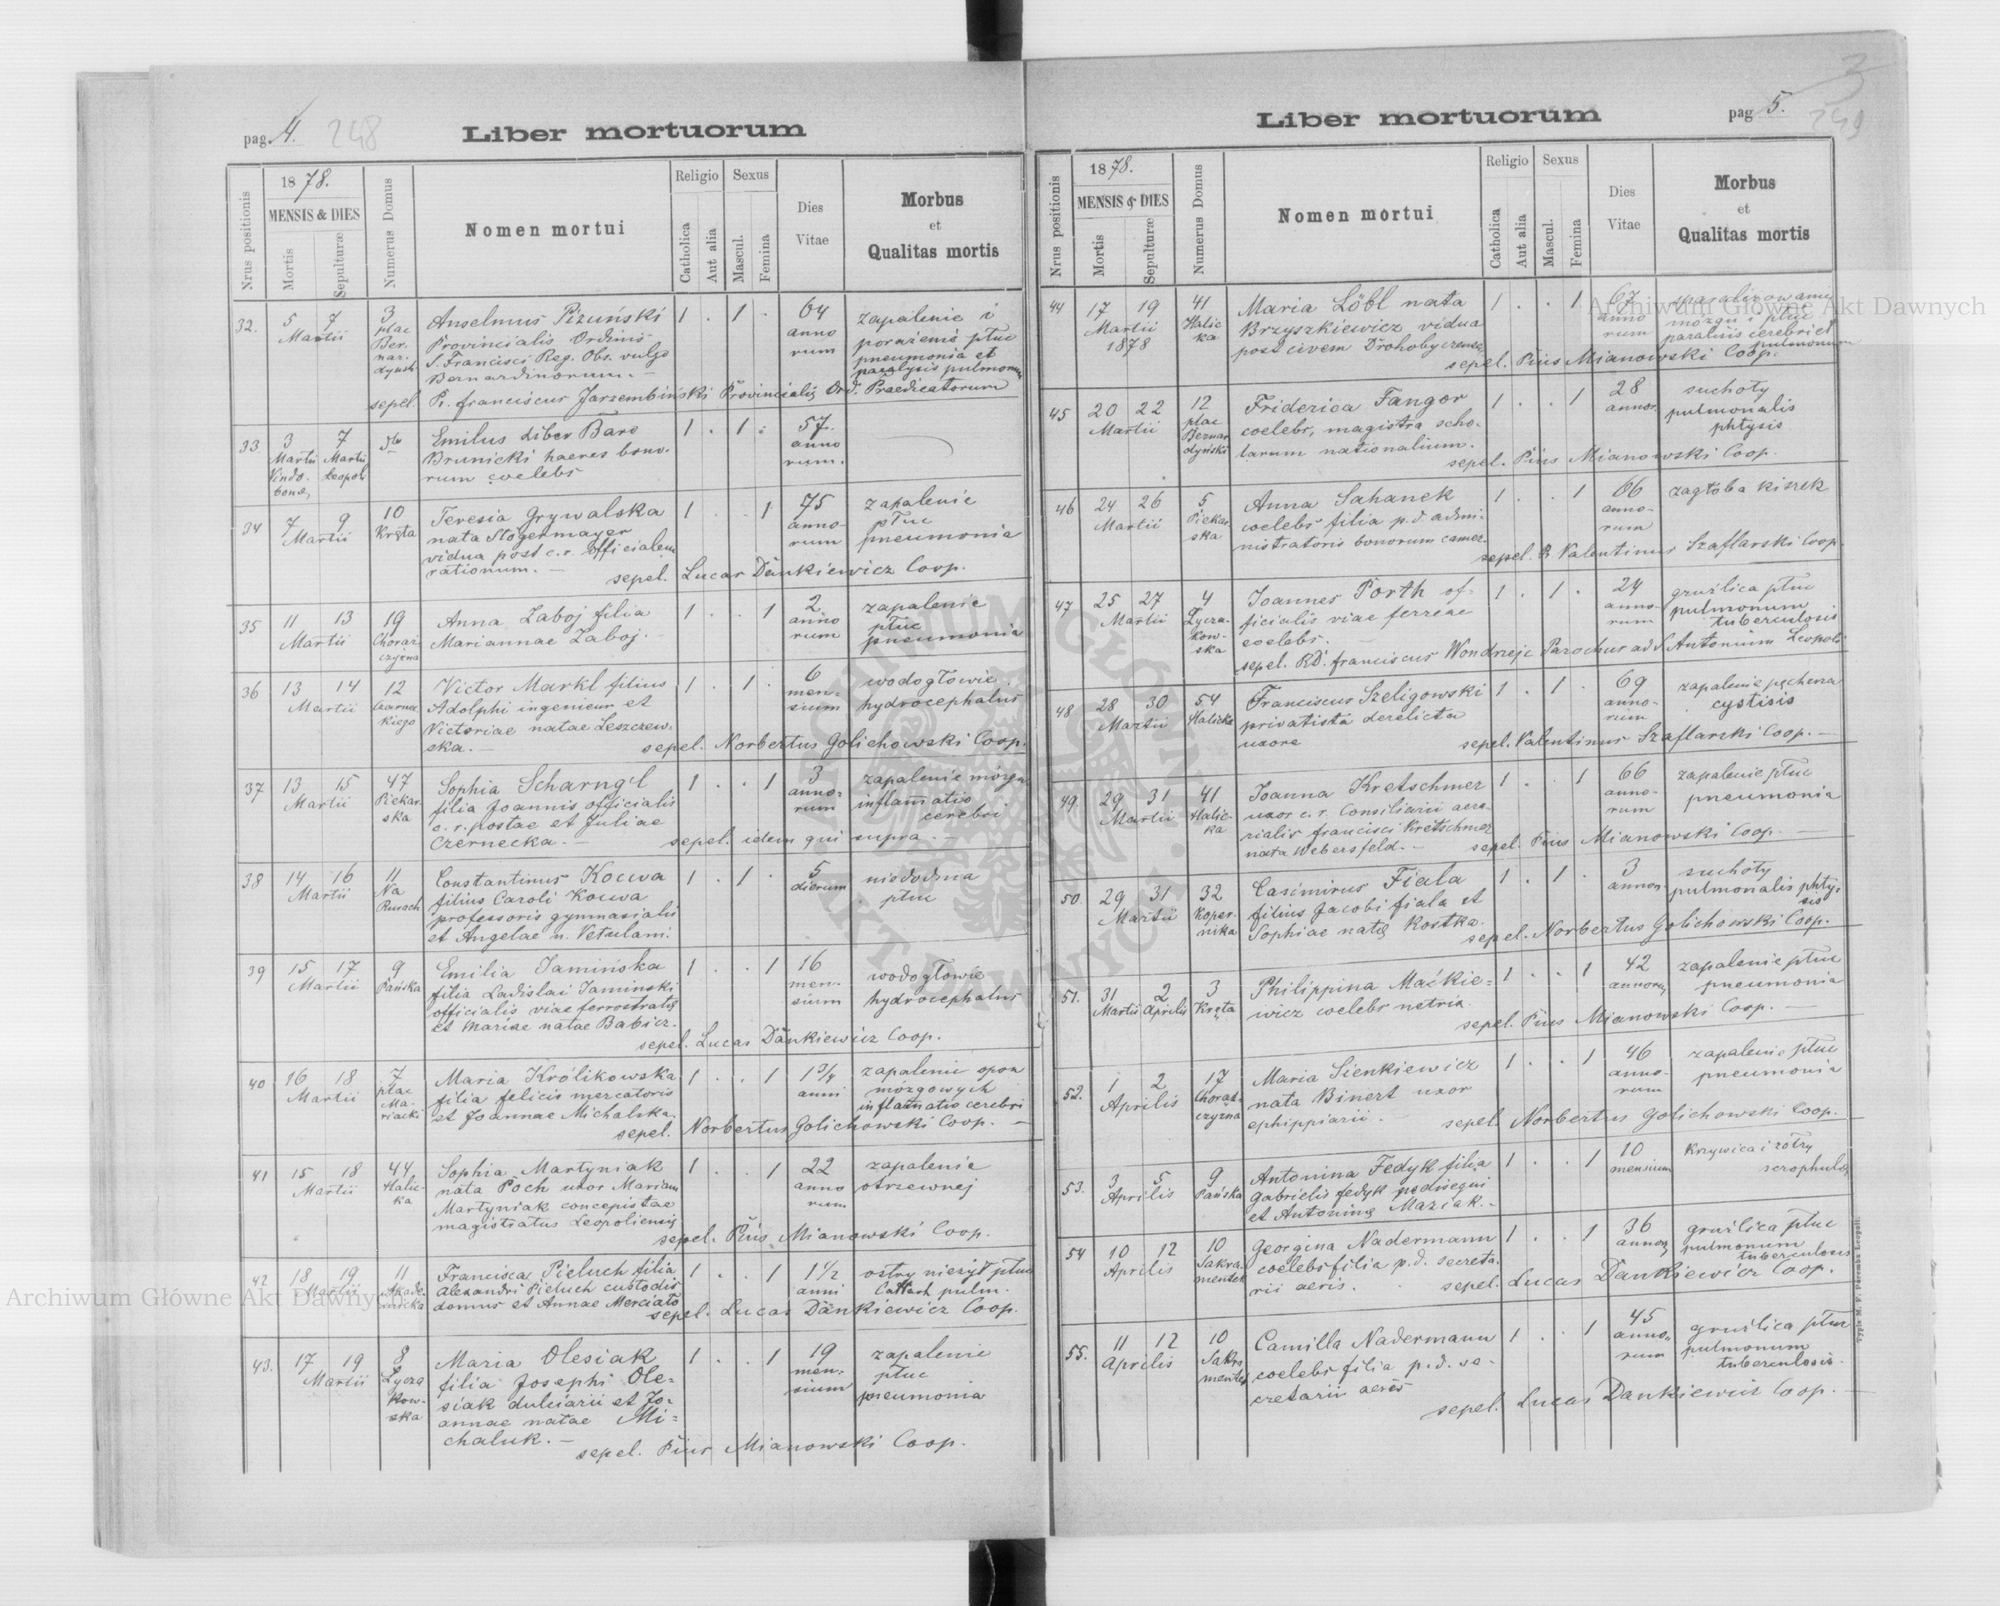 pag. 4. 248
Liber mortuorum
Nrus positionis
1878.
MENSIS & DIES
Mortis
Sepulturæ
Numerus Domus
Nomen mortui
Religio
Catholica
Aut alia
Sexus
Mascul.
Femina
Dies
Vitae
Morbus
et
Qualitas mortis
32. 5 7 Martii 3 plac Ber- nar- dyński
Anselmus Pizuński
Provincialis Ordinis
S. Francisci Reg. Obs. vulgo
Bernardinorum. —
1 . 1 . 64 anno rum
zapalenie i
porażenie płuc
pneumonia et
paralysis pulmonum
sepel. Pr. franciscus Jarzembiński Provincialis Ord. Praedicatorum
33 3 Martii Vindo- bonæ, 7 Martii Leopoli
Emilus liber Baro
Brunicki haeres bono-
rum coelebs
1 . 1 . 57. anno rum.
34 7 9 Martii 10 Kręta
Teresia Grywalska
nata Stogermayer
vidua post c. r. officialem
rationum. —
1 . . 1 75 anno- rum
zapalenie
płuc
pneumonia
sepel. Lucas Dankiewicz Coop.
35 11 13 Martii 19 Chorąż- czyzna
Anna Zaboj filia
Mariannae Zaboj. —
1 . . 1 2 anno rum
zapalenie
płuc
pneumonia
36 13 14 Martii 12 Czarnec kiego
Victor Markl filius
Adolphi ingenieur et
Victoriae natae Leszczew-
ska. —
1 . 1 . 6 men- sium
wodogłowie
hydrocephalus
sepel. Norbertus Golichowski Coop.
37 13 15 Martii 47 Piekar- ska
Sophia Scharng'l
filia Joannis officialis
c. r. postae et Juliae
Czernecka. —
1 . . 1 3 anno- rum
zapalenie mózgu
inflamatio
cerebri
sepel. idem qui supra. —
38 14 16 Martii 11 Na Rurach
Constantinus Kocwa
filius Caroli Kocwa
professoris gymnasialis
et Angelae n. Vetulani.
1 . 1 . 5 dierum
niedodma
płuc
39 15 17 Martii 9 Pańska
Emilia Jamińska
filia Ladislai Jaminski
officialis viae ferrostratę
et Mariae natae Babicz.
1 . . 1 16 men- sium
wodogłowie
hydrocephalus
sepel. Lucas Dankiewicz Coop.
40 16 18 Martii 7 plac Ma- riacki
Maria Królikowska
filia felicis mercatoris
et Joannae Michalska.
1 . . 1 1 3/4 anni
zapalenie opon
mózgowych
inflamatio cerebri
sepel. Norbertus Golichowski Coop. —
41 15 18 Martii 44 Halic- ka
Sophia Martyniak
nata Poch uxor Mariani
Martyniak concepistae
magistratus Leopoliensis
1 . . 1 22 anno rum
zapalenie
otrzewnej
sepel. Pius Mianowski Coop.
42 18 19 Martii 11 Akade- micka
Francisca Pieluch filia
Alexandri Pieluch custodis
domus et Annae Merciato
1 . . 1 1 1/2 anni
ostry nieżyt płuc
Catarh pulm.
sepel. Lucas Dankiewicz Coop.
43. 17 19 Martii 8 Łycza kow- ska
Maria Olesiak
filia Josephi Ole-
siak dulciarii et Jo-
annae natae Mi-
chaluk. —
1 . . 1 19 men- sium
zapalenie
płuc
pneumonia
sepel. Pius Mianowski Coop.
pag 5. 249
Liber mortuorum
Nrus positionis
1878.
MENSIS & DIES
Mortis
Sepulturæ
Numerus Domus
Nomen mortui
Religio
Catholica
Aut alia
Sexus
Mascul.
Femina
Dies
Vitae
Morbus
et
Qualitas mortis
44 17 19 Martii 1878 41 Halic ka
Maria Löbl nata
Brzyszkiewicz vidua
post civem Drohobyczensem
1 . . 1 67 anno rum
sparaliżowanie
mózgu i płuc
paralisis cerebri et
pulmonum
sepel. Pius Mianowski Coop.
45 20 22 Martii 12 plac Bernar dyński
Friderica Fangor
coelebs, magistra scho-
larum nationalium.
1 . . 1 28 annor.
suchoty
pulmonalis
phtysis
sepel. Pius Mianowski Coop.
46 24 26 Martii 5 Piekar ska
Anna Sahanek
coelebs filia p. d. admi-
nistratoris bonorum camer.
1 . . 1 66 anno- rum
zagłoba kiszek
sepel. R Valentinus Szaflarski Coop.
47 25 27 Martii 4 Łycza- kow- ska
Joannes Porth of-
ficialis viae ferreae
coelebs.
1 . 1 . 24 anno- rum
gruźlica płuc
pulmonum
tuberculosis
sepel. RD. franciscus Wondrejc Parochus ad S. Antonium Leopoli
48. 28 30 Martii 54 Halicka
Franciscus Szeligowski
privatista derelicta
uxore
1 . 1 . 69 anno- rum
zapalenie pęcherza
cystisis
sepel. Valentinus Szaflarski Coop. —
49. 29 31 Martii 41 Halic- ka
Joanna Kretschmer
uxor c. r. Consiliarii aera-
rialis francisci Kretschmer
nata Webersfeld. —
1 . . 1 66 anno- rum
zapalenie płuc
pneumonia
sepel. Pius Mianowski Coop. —
50. 29 31 Martii 32 Koper- nika
Casimirus Fiala
filius Jacobi fiala et
Sophiae natę Kostka.
1 . 1 . 3 annor.
suchoty
pulmonalis phty-
sis
sepel. Norbertus Golichowski Coop.
51. 31 Martii 2 Aprilis 3 Kręta
Philippina Maćkie-
wicz coelebs netria.
1 . . 1 42 annorum
zapalenie płuc
pneumonia
sepel. Pius Mianowski Coop. —
52. 1 2 Aprilis 17 Chorąż- czyzna
Maria Sienkiewicz
nata Binert uxor
ephippiarii. —
1 . . 1 46 anno- rum
zapalenie płuc
pneumonia
sepel. Norbertus Golichowski Coop.
53. 3 5 Aprilis 9 Pańska
Antonina Fedyk filia
Gabrielis fedyk pedisequi
et Antoninę Maziak. —
1 . . 1 10 mensium
krzywica i zołzy
scrophulę
54 10 12 Aprilis 10 Sakra mentek
Georgina Nadermann
coelebs filia p. d. secreta-
rii aeris.
1 . . 1 36 annor.
gruźlica płuc
pulmonum
tuberculosis
sepel. Lucas Dankiewicz Coop.
55. 11 12 Aprilis 10 Sakra mentek
Camilla Nadermann
coelebs filia p. d. se-
cretarii aeris
1 . . 1 45 anno- rum
gruźlica płuc
pulmonum
tuberculosis.
sepel. Lucas Dankiewicz Coop. —
Archiwum Główne Akt Dawnych
Archiwum Główne Akt Dawnych
ARCHIWUM GŁÓWNE AKT DAWNYCH